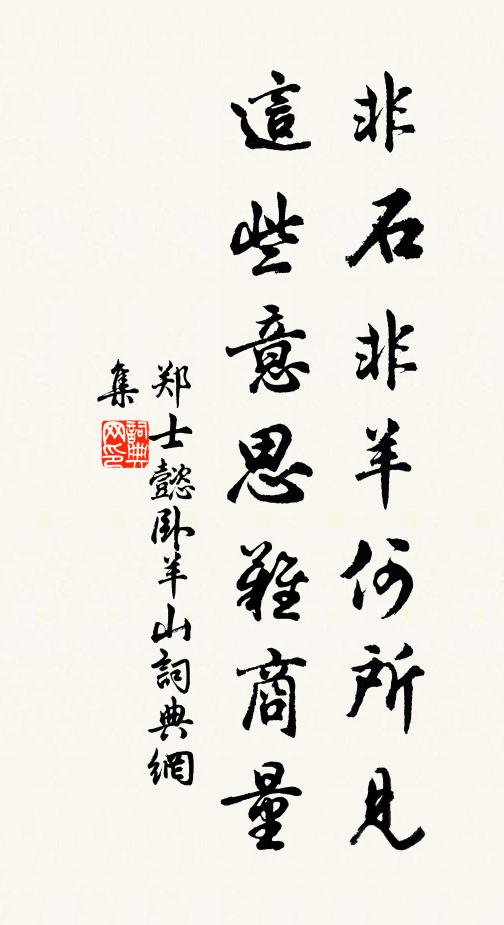 非石非羊何所見
這些意思難商量
郑士懿卧羊山詞典網
集
詞典
网印